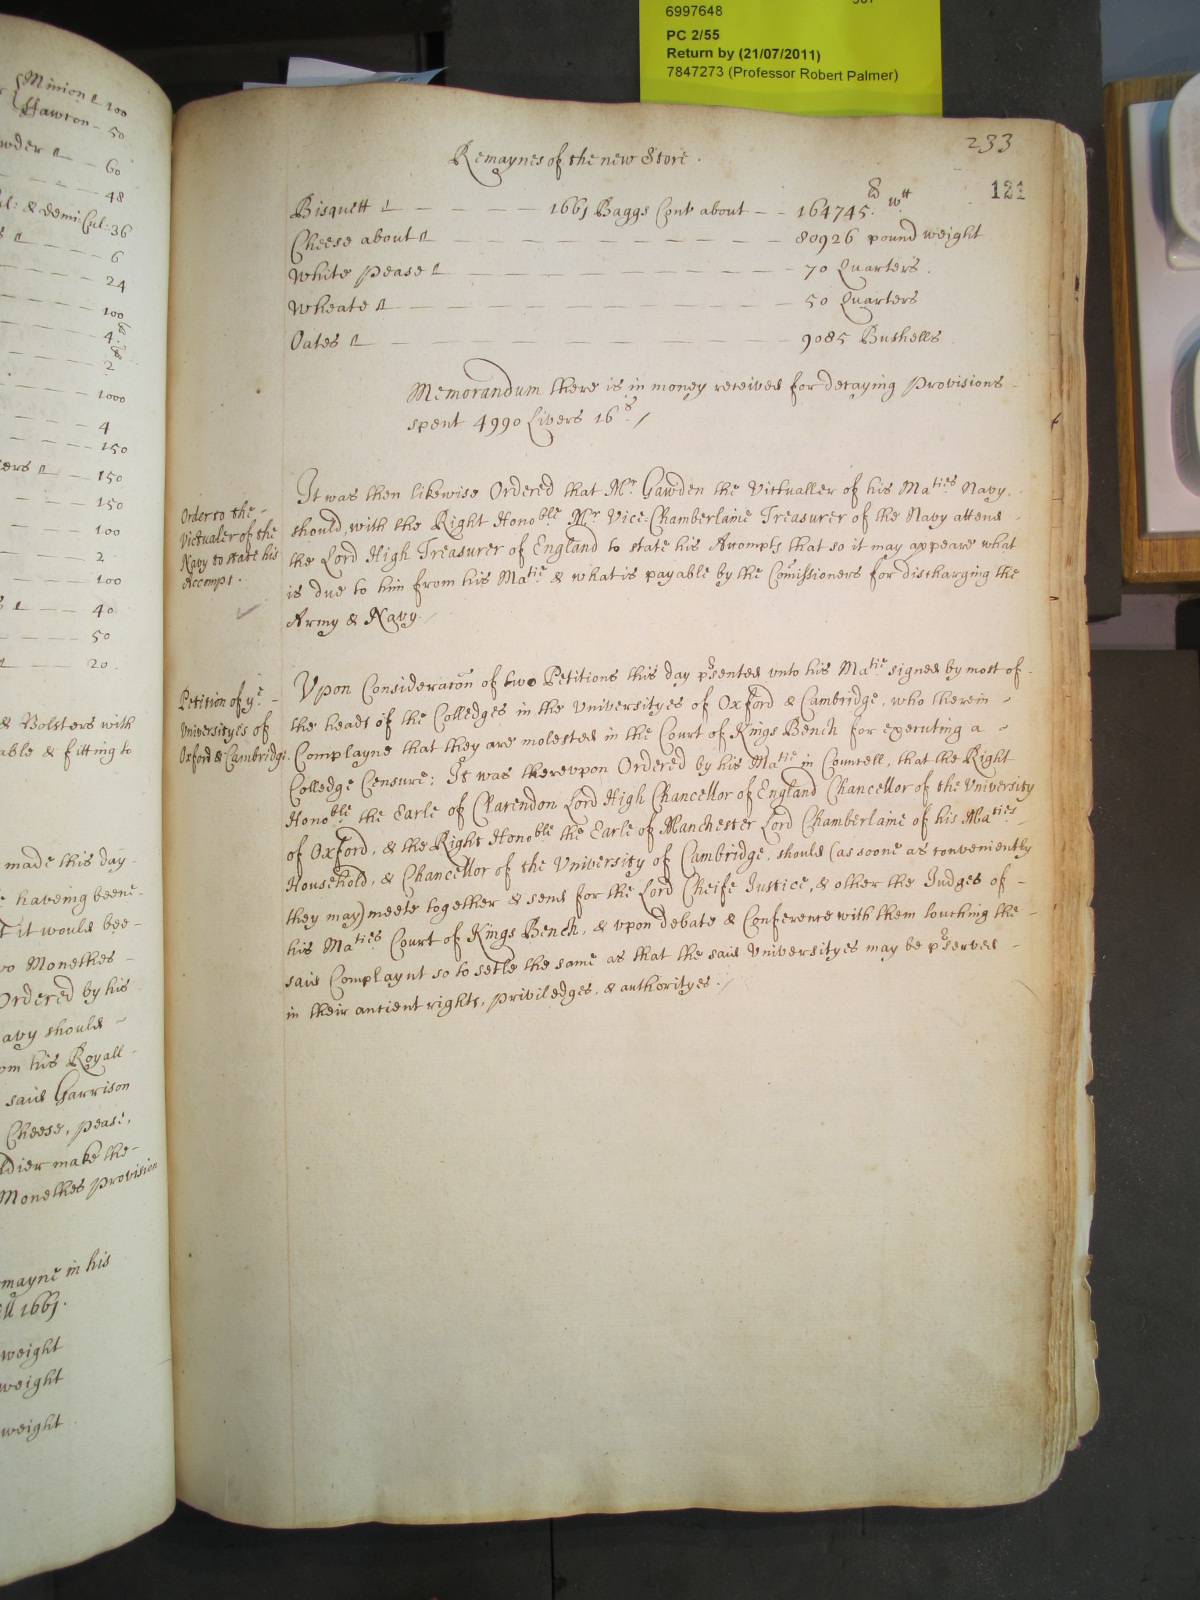 6997648
PC 2/55
Return by (21/07/2011)
7847273 (Professor Robert Palmer)
Minion 100
Hawton - 50
60
48
& demi: Cul: 36
6
24
100
4
2
1000
4
150
150
150
100
2
100
40
50
20
& Bolsters with
able & fitting to
made this day
haveing beene
it it would bee
Monethes
Ordered by his
avy should
om his Royall
said Garrison
Cheese, pease,
make the
Monethes provision
mayne in his
1661.
weight
weight
weight
233
121
Remaynes of the new Store.
Bisquett — 1661 Baggs Cont about — 164745. wtt
Cheese about — 80926 pound weight
White pease — 70 Quarters.
Wheate — 50 Quarters
Oates — 9085 Bushells
Memorandum there is in money received for decaying Provisions
spent 4990 Livers 16s/
Order to the
Victualer of the
Navy to state his
Accompt.
It was then likewise Ordered that Mr Gawden the Victualler of his Maties Navy,
should, with the Right Honoble Mr Vice-Chamberlaine Treasurer of the Navy attend
the Lord High Treasurer of England to state his Accompts that so it may appeare what
is due to him from his Matie & what is payable by the Comissioners for discharging the
Army & Navy.
Petition of ye
Universityes of
Oxford & Cambridge.
Upon Consideracon of two Petitions this day psented unto his Matie signed by most of
the heads of the Colledges in the Universityes of Oxford & Cambridge, who therein
Complayne that they are molested in the Court of Kings Bench for executing a
Colledge Censure; It was therevpon Ordered by his Matie in Councell, that the Right
Honoble the Earle of Clarendon Lord High Chancellor of England Chancellor of the University
of Oxford, & the Right Honoble the Earle of Manchester Lord Chamberlaine of his Maties
Household, & Chancellor of the University of Cambridge, should (as soone as conveniently
they may) meete together & send for the Lord Cheife Justice, & other the Judges of
his Maties Court of Kings Bench, & vpon debate & Conference with them touching the
said Complaynt so to setle the same as that the said Universityes may be pserved
in their antient rights, priviledges, & authorityes./